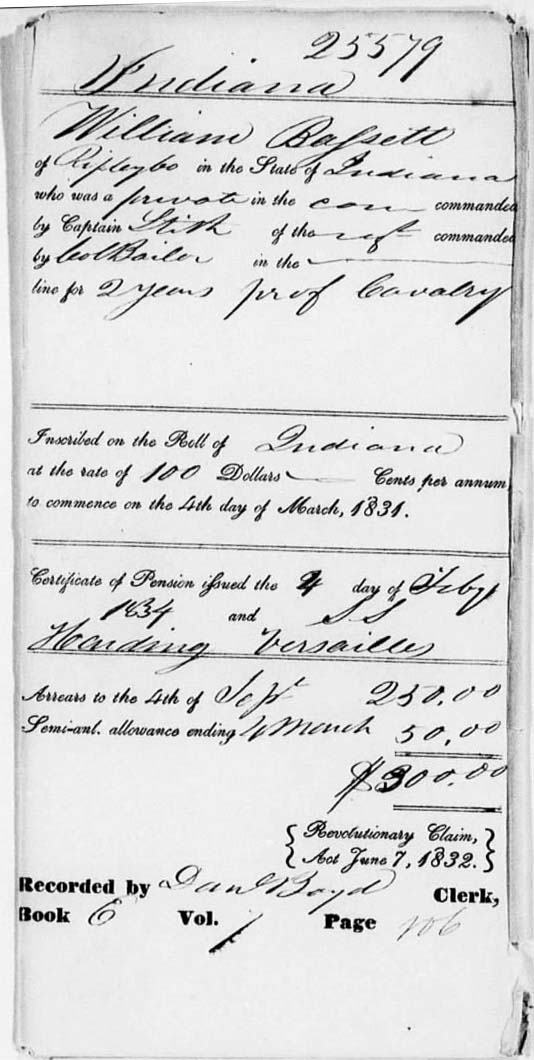 25579
Indiana
William Bassett
of Ripley co in the State of Indiana
who was a private in the com commanded
by Captain Stith of the regt commanded
by Col Bailor in the
line for 2 years prof Cavalry
Inscribed on the Roll of Indiana
at the rate of 100 Dollars Cents per annum,
to commence on the 4th day of March, 1831.
Certificate of Pension issued the 4 day of Feby
1834 and S S
Harding Versailles
Arrears to the 4th of Sept 250.00
Semi-anl. allowance ending 4 March 50.00
$300.00
Revolutionary Claim,
Act June 7, 1832.
Recorded by Danl Boyd Clerk,
Book E Vol. 1 Page 106